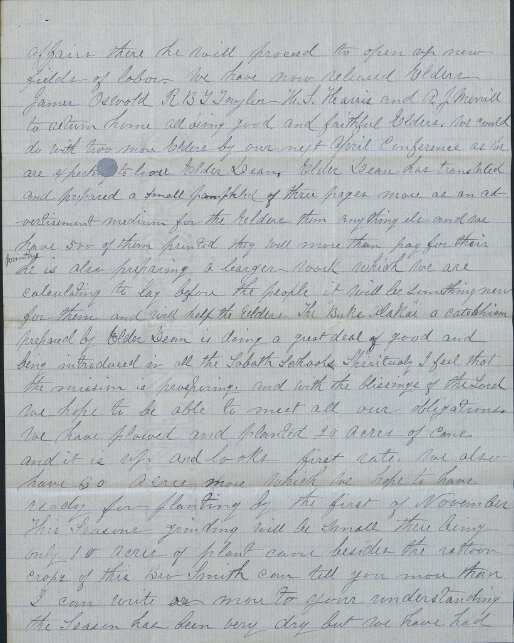 affairs there he will proceed to open up new
fields of labor. We have now released Elders
James Oswold R B T Taylor H. S. Harris and R J Morrill
to return home all being good and faithful Elders. We could
do with two more Elders by our next April Conference as we
are expecting to loose Elder Dean, Elder Dean has translated
and prepared a small pamphlet of three pages more as an ad-
vertisement medium for the Elders then anything els and we
have 500 of them printed they will more than pay for their
printing
he is also preparing a learger work which we are
calculating to lay before the people it will be something new
for them and will help the Elders. The Buke Hakai a catechism
prepared by Elder Dean is doing a great deal of good and
being introduced in all the Sabath Schools Spiritualy I feel that
the mission is prospering. and with the blessings of the Lord
we hope to be able to meet all our obligations
we have plowed and planted 20 acres of cane
and it is up and looks first rate. We also
have 60 Acres more which we hope to have
ready for planting by the first of November
This Seasons grinding will be small there being
only 10 acres of plant cane besides the rattoon
crops of this Bro Smith can tell you more than
I can write more to your understanding
the Season has been very dry but we have had